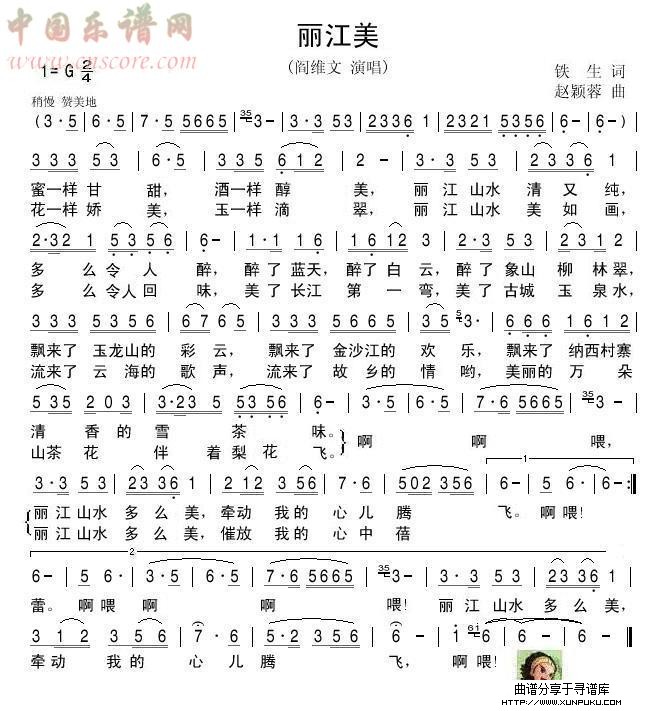 中国乐谱网
www.cnscore.com
丽江美
(阎维文 演唱)
1=G 2/4
铁 生 词
赵颖蓉 曲
稍慢 赞美地
(3·5 | 6·5 | 7·5 5665 | 35 3- | 3·5 3 5 | 2336 1 | 2321 5356 | 6- | 6-) |
3 3 3 5 3 | 6·5 | 3 3 5 6 1 2 | 2 - | 3·3 5 3 | 2 3 3 6 |
蜜一样 甘 甜， 酒一样 醇 美， 丽 江 山水 清 又 纯，
花一样 娇 美， 玉一样 滴 翠， 丽 江 山水 美 如 画，
2·32 1 | 5 3 5 6 | 6- | 1·1 1 6 | 1 6 12 3 | 3·3 5 3 | 2 3 1 2 |
多 么 令 人 醉， 醉 了 蓝天， 醉了 白 云， 醉 了 象山 柳 林 翠，
多 么 令人 回 味， 美 了 长江 第 一 弯， 美 了 古城 玉 泉 水，
3·3 3 5 3 5 6 | 6 7 6 5 | 3·3 3 5 6 5 | 3 5 5 3· | 6·6 6 1 6 1 2 |
飘来了 玉龙山的 彩 云， 飘来了 金沙江的 欢 乐， 飘来了 纳西村寨
流来了 云 海的 歌 声， 流来了 故 乡的 情 哟， 美丽的 万 朵
5 35 2 0 3 | 3·23 5 | 53 56 | 6 - | 3·5 | 6·5 | 7·6 5665 | 35 3- |
清 香的 雪 茶 味。 啊 啊 喂，
山茶 花 伴 着 梨花 飞。
3·3 5 3 | 2 3 3 6 1 | 3·2 1 2 | 3 5 6 | 7·6 | 502 356 | 6- | 6- :|
丽 江 山水 多 么 美，牵动 我 的 心 儿 腾 飞。啊喂!
丽 江 山水 多 么 美，催放 我 的 心 中 蓓
6- | 5 6· | 3·5 | 6·5 | 7·6 5665 | 35 3- | 3·3 5 3 | 23 36 1 |
蕾。 啊喂 啊 啊 喂! 丽 江 山水 多 么 美，
3 1 2 | 3 5 6 | 7·6 | 5·2 3 5 | 6 - | 6 - | 1 6 | 6 - | 6 - ‖
牵动 我 的 心 儿 腾 飞， 啊喂!
曲谱分享于寻谱库
HTTP://WWW.XUNPUKU.COM